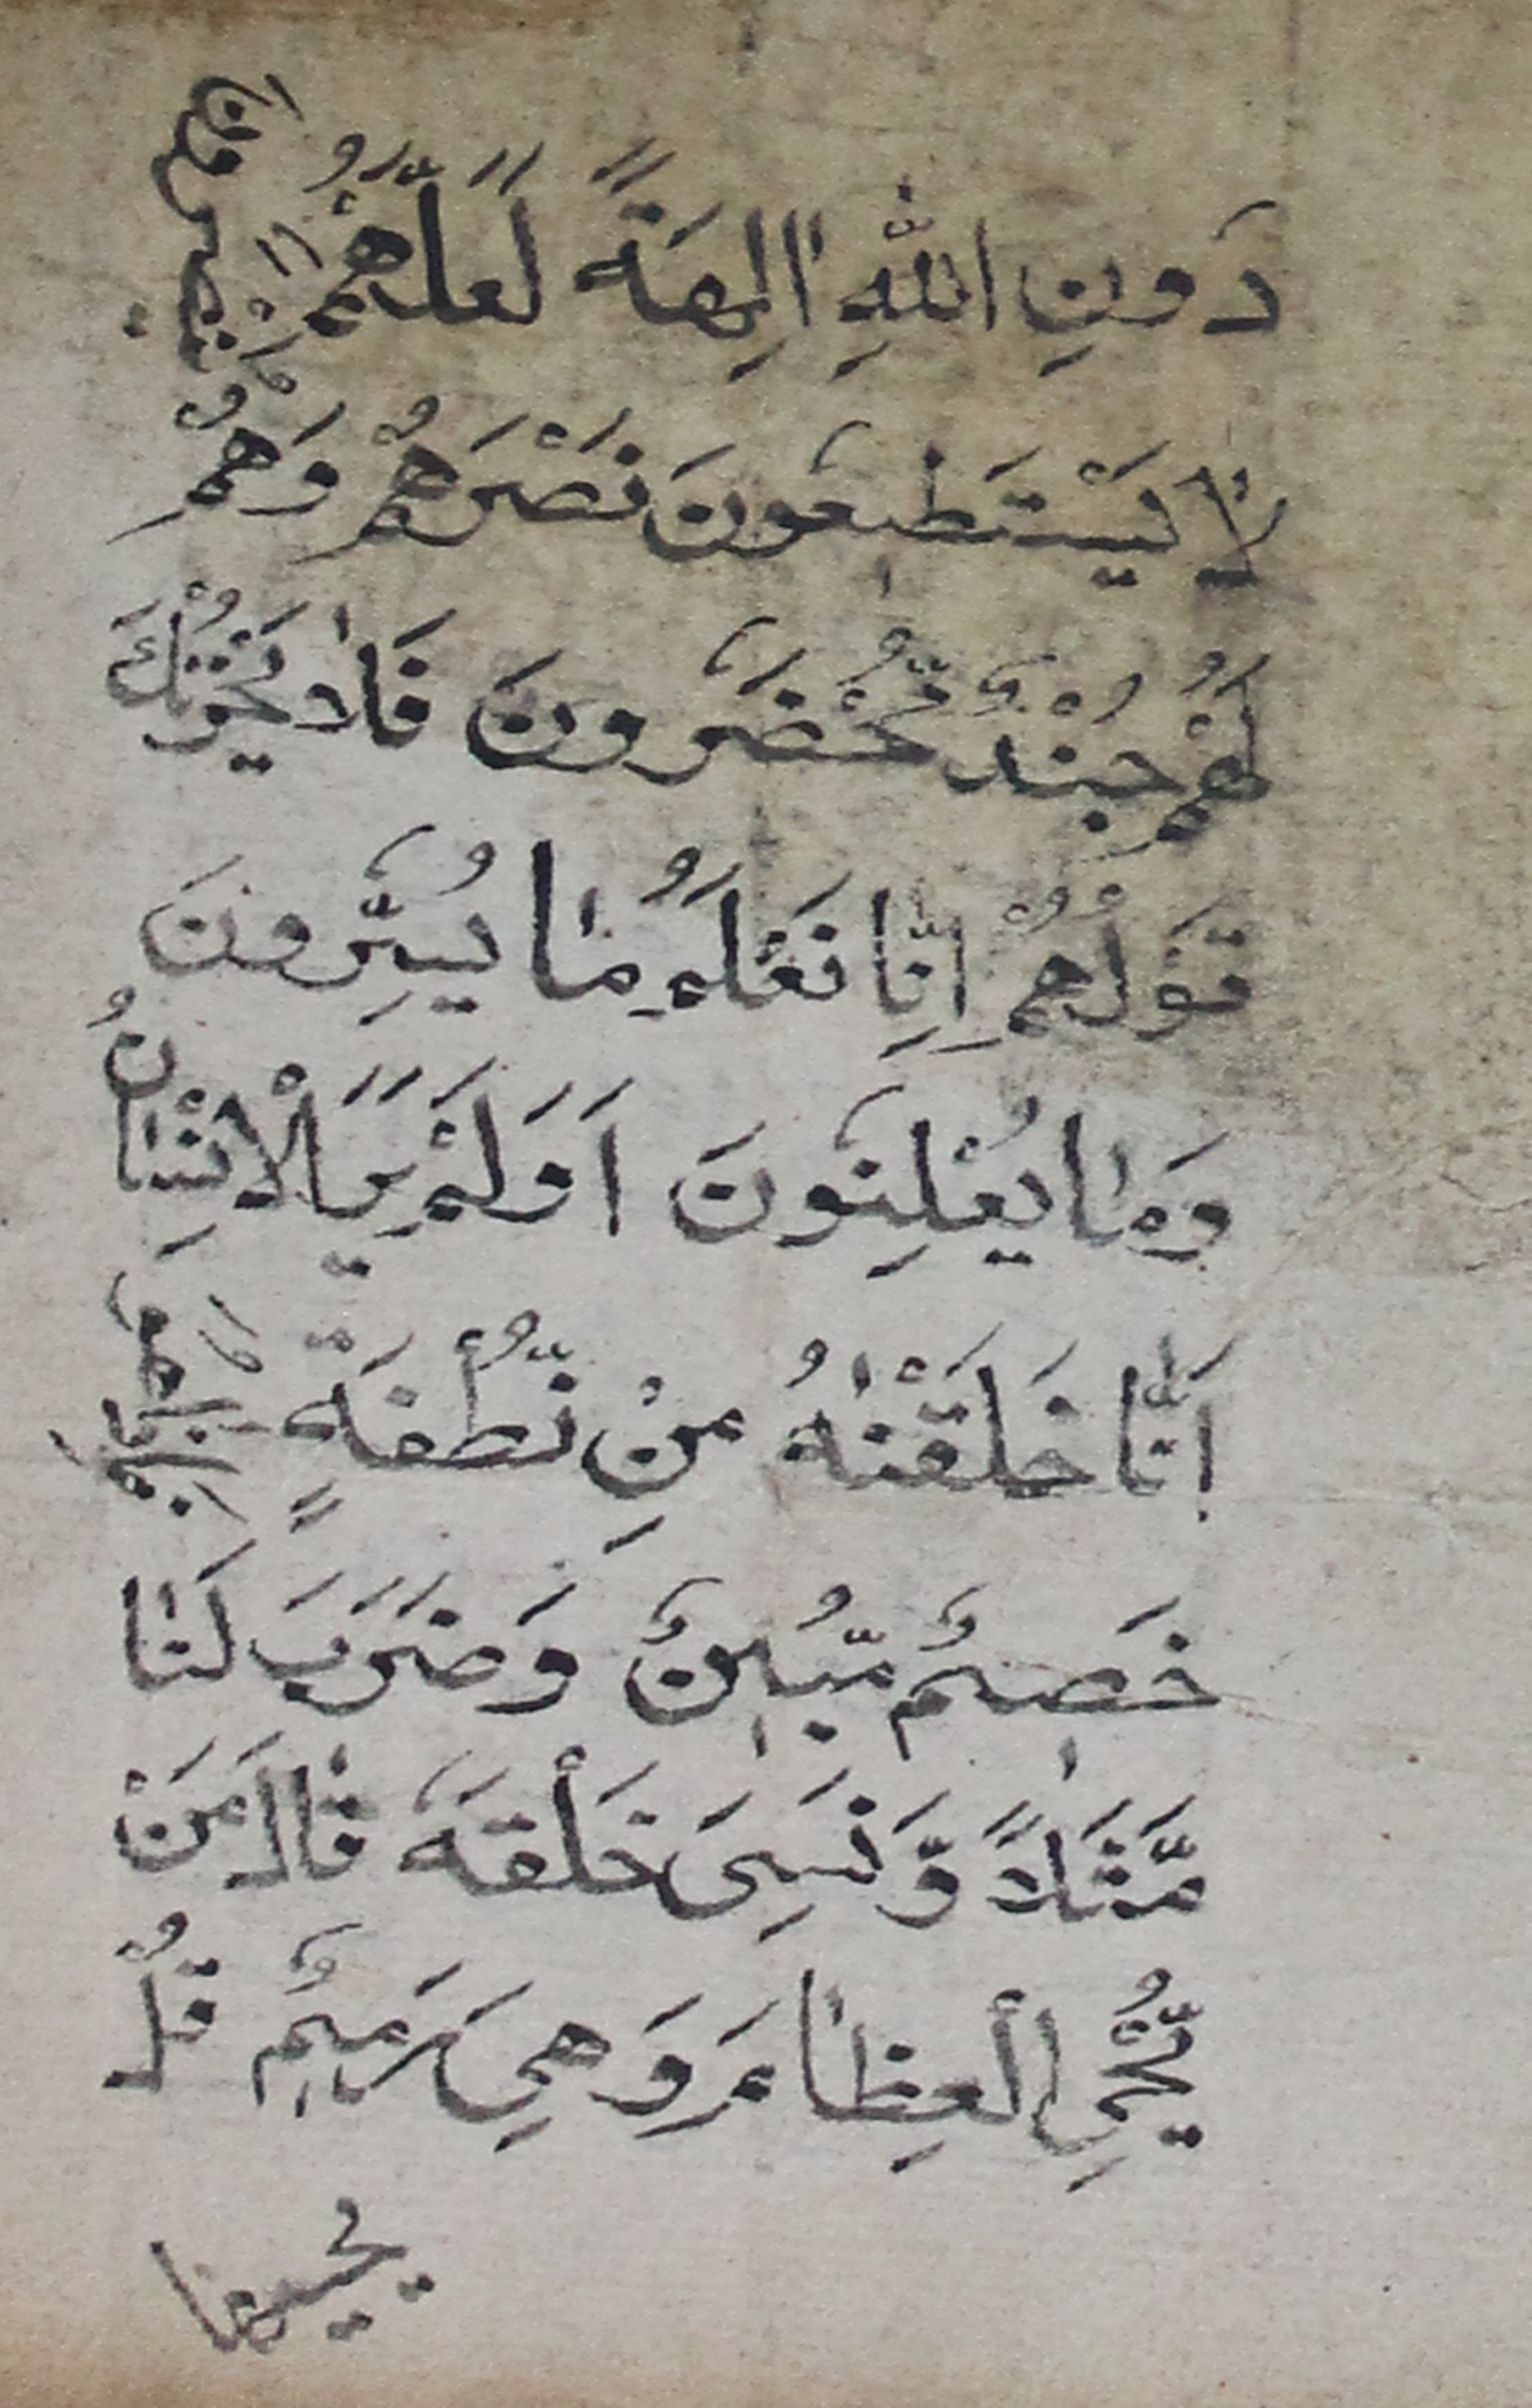 دَونِ اللّٰهِ اٰلِهَةً لَعَلَّهُمْ يُنْصَرُونَ
لَا يَسْتَطٖيعُونَ نَصْرَهُمْ وَهُمْ
لَهُمْ جُنْدٌ مُّحْضَرُونَ فَلٰا يَحْزُنْكَ
قَوْلُهُمْ اِنّٰا نَعْلَمُ مٰا يُسِرُّونَ
وَمٰا يُعْلِنُونَ اَوَلَمْ يَرَ الْاِنْسٰانُ
اَنّٰا خَلَقْنٰهُ مِنْ نُّطْفَةٍ فَاِذَا هُوَ
خَصٖيمٌ مُّبٖينٌ وَضَرَبَ لَنٰا
مَّثَلاً وَّنَسِىَ خَلْقَهُ قٰالَ مَنْ
يُّحْىِ الْعِظٰامَ وَهِىَ رَمٖيمٌ قُلْ
يحييها